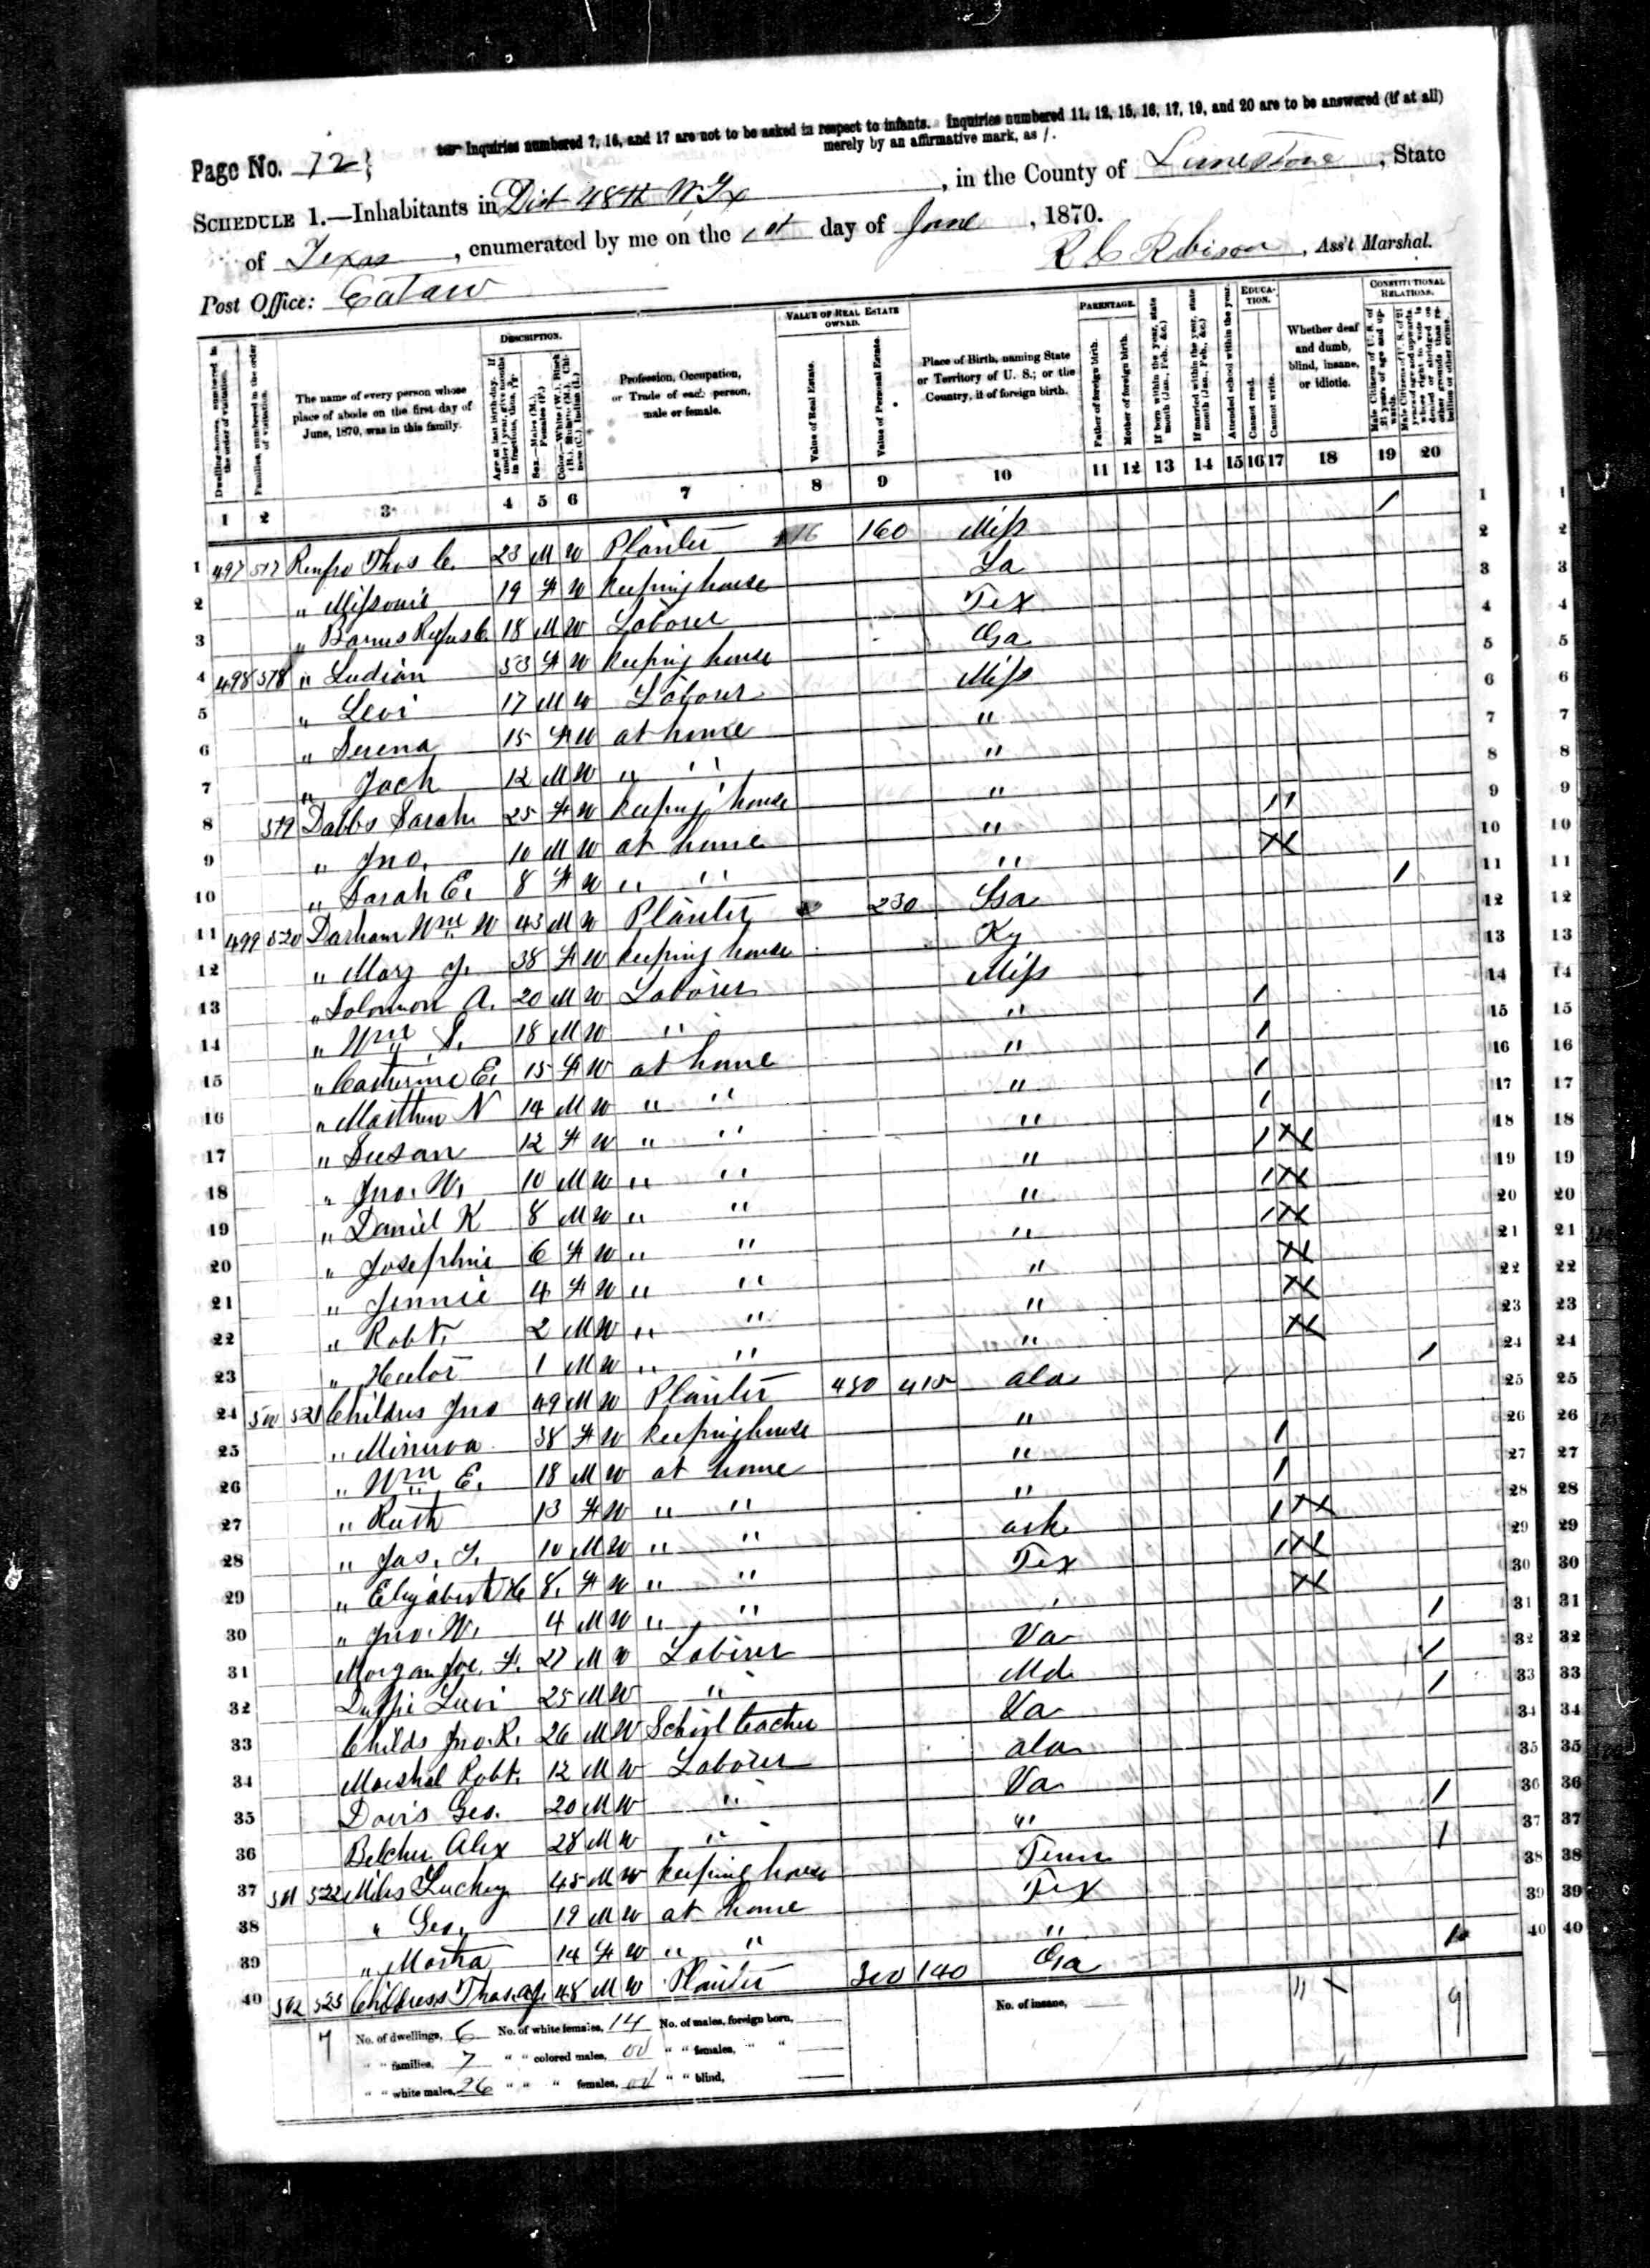 Page No. 72
Inquiries numbered 7, 16, and 17 are not to be asked in respect to infants. Inquiries numbered 11, 12, 15, 16, 17, 19, and 20 are to be answered (if at all)
merely by an affirmative mark, as /.
SCHEDULE 1.—Inhabitants in Dist 48th , in the County of Limestone, State
of Texas, enumerated by me on the 1st day of June, 1870.
Post Office: Eutaw
R C Robison, Ass't Marshal.
DESCRIPTION. VALUE OF REAL ESTATE OWNED. PARENTAGE. EDUCATION. CONSTITUTIONAL RELATIONS.
Dwelling-houses, numbered in the order of visitation.
Families, numbered in the order of visitation.
The name of every person whose place of abode on the first day of June, 1870, was in this family.
Age at last birth-day. If under 1 year, give months in fractions, thus, 
Sex.—Males (M.), Females (F.)
Color.—White (W.), Black (B.), Mulatto (M.), Chinese (C.), Indian (I.)
Profession, Occupation, or Trade of each person, male or female.
Value of Real Estate.
Value of Personal Estate.
Place of Birth, naming State or Territory of U. S.; or the Country, if of foreign birth.
Father of foreign birth.
Mother of foreign birth.
If born within the year, state month (Jan., Feb., &c.)
If married within the year, state month (Jan., Feb., &c.)
Attended school within the year.
Cannot read.
Cannot write.
Whether deaf and dumb, blind, insane, or idiotic.
Male Citizens of U. S. of 21 years of age and upwards.
Male Citizens of U. S. of 21 years of age and upwards, whose right to vote is denied or abridged on other grounds than rebellion or other crime.
1 2 3 4 5 6 7 8 9 10 11 12 13 14 15 16 17 18 19 20
1 497 517 Renfro Thos C. 23 M W Planter 160 Miss / 1
2 " Missouri 19 F W Keeping house La 2
3 " Barnes Rufus C 18 M W Laborer Tex 3
4 498 518 " Ludian 53 F W Keeping house Ga 4
5 " Levi 17 M W Laborer Miss 5
6 " Serena 15 F W at home " 6
7 " Jack 12 M W " " " 7
8 519 Dabbs Sarah 25 F W Keeping house " 8
9 " Jno. 10 M W at home " 1 1 9
10 " Sarah E. 8 F W " " " 10
11 499 520 Darham Wm W 43 M W Planter 230 Ga / 11
12 " Mary J. 38 F W Keeping house Ky 12
13 " Solomon A. 20 M W Laborer Miss 13
14 " Wm S. 18 M W " " / 14
15 " Catherine E. 15 F W at home " / 15
16 " Matthew N 14 M W " " " / 16
17 " Susan 12 F W " " " / 17
18 " Jno. W. 10 M W " " " / 18
19 " Daniel K 8 M W " " " / 19
20 " Josephine 6 F W " " " / 20
21 " Jennie 4 F W " " " 21
22 " Robt. 2 M W " " " 22
23 " Hector 1 M W " " " 23
24 500 521 Childres Jno 49 M W Planter 450 415 Ala / 24
25 " Minerva 38 F W Keeping house " 25
26 " Wm E. 18 M W at home " / 26
27 " Ruth 13 F W " " " / 27
28 " Jas. T. 10 M W " " Ark / 28
29 " Elizabeth H 8 F W " " Tex / 29
30 " Jno. W. 4 M W " " 30
31 Morgan Joe. F. 27 M W Laborer Va / 31
32 Duffie Levi 25 M W " Md / 32
33 Childs Jno. R. 26 M W School teacher Va / 33
34 Marshal Robt. 12 M W Laborer Ala 34
35 Davis Geo. 20 M W " Va 35
36 Belcher Alex 28 M W " " / 36
37 501 522 Miles Luckey 45 M W Keeping house Tenn / 37
38 " Geo. 19 M W at home Tex 38
39 " Martha 14 F W " " " 39
40 502 523 Childress Thos. J. 48 M W Planter 300 140 Ga / 40
7 No. of dwellings, 6 No. of white females, 14 No. of males, foreign born, No. of insane, 11 9
" " families, 7 " " colored males, 00 " " females, " "
" " white males, 26 " " " females, 00 " " blind,